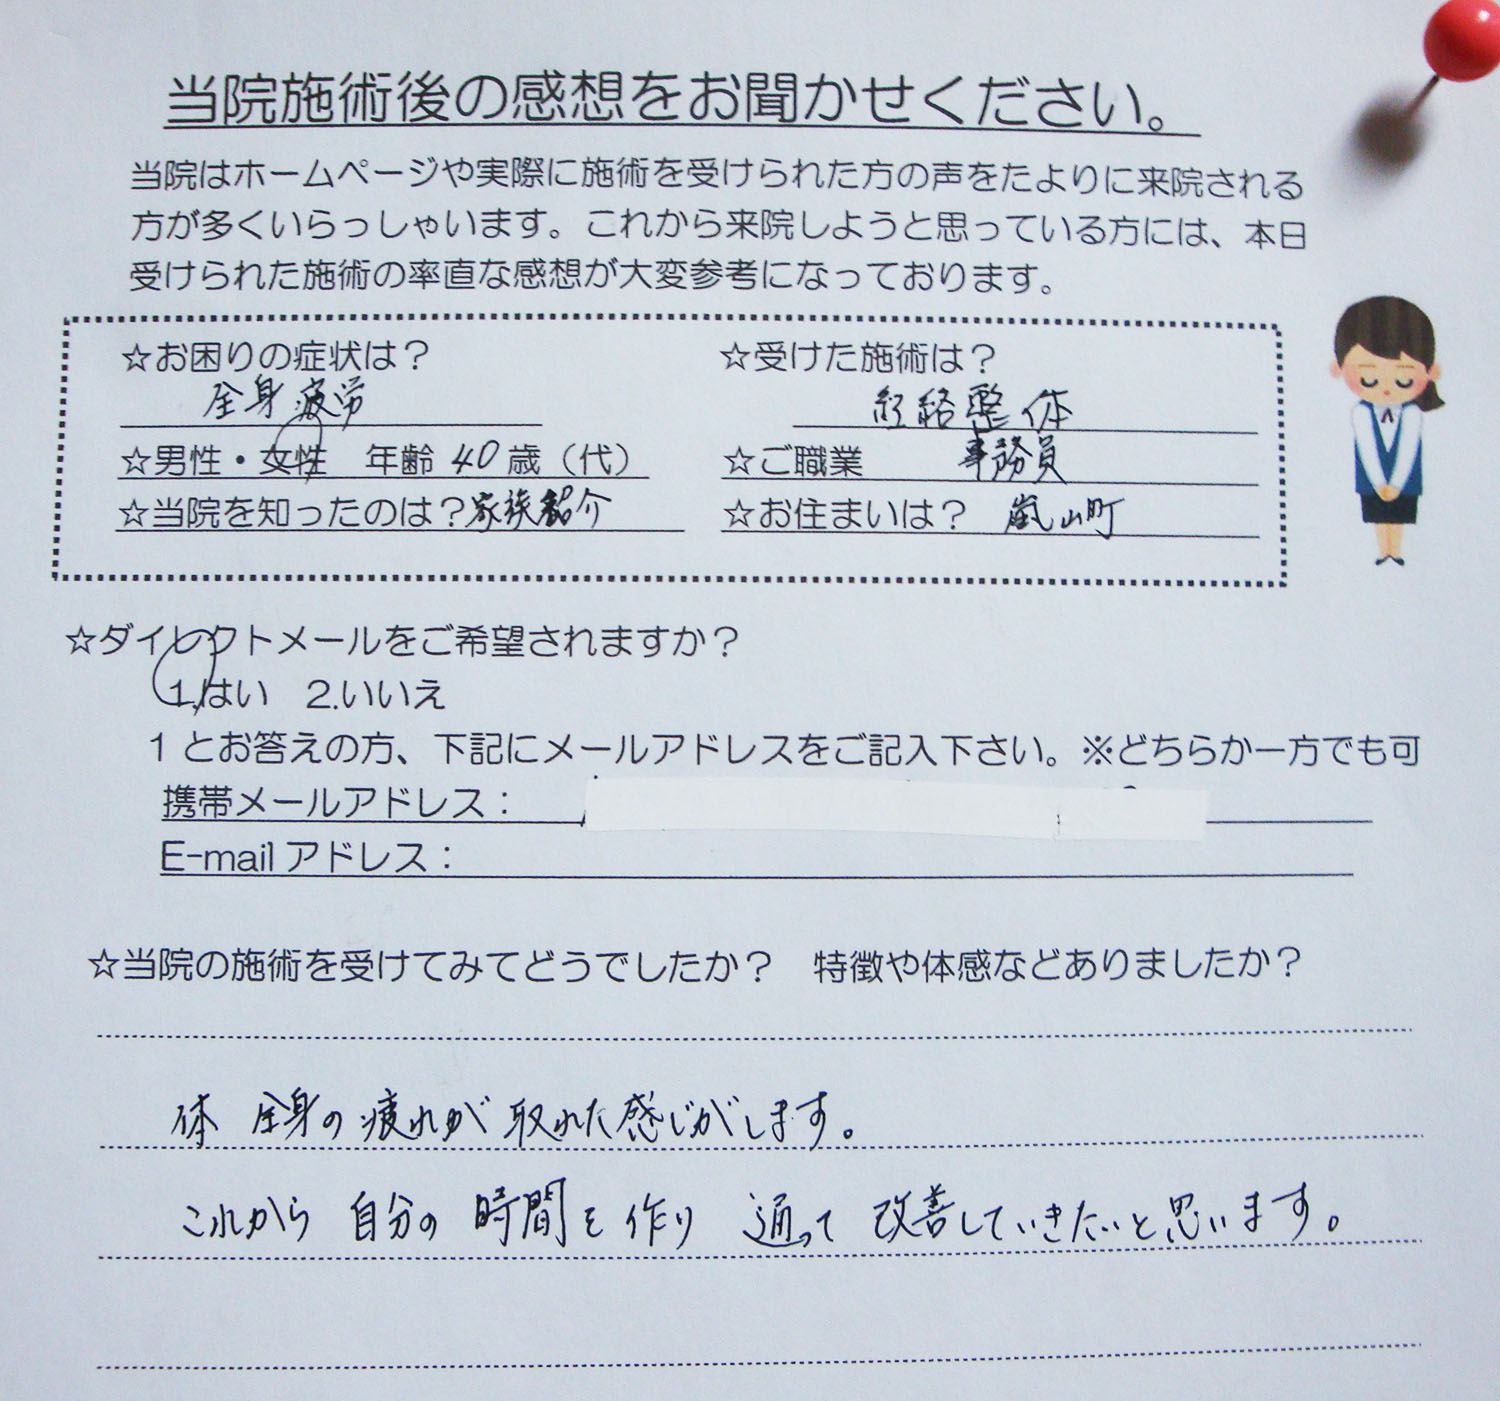 当院施術後の感想をお聞かせください。
当院はホームページや実際に施術を受けられた方の声をたよりに来院される
方が多くいらっしゃいます。これから来院しようと思っている方には、本日
受けられた施術の率直な感想が大変参考になっております。
☆お困りの症状は？ ☆受けた施術は？
全身疲労 経絡整体
☆男性・女性 年齢 40 歳（代） ☆ご職業 事務員
☆当院を知ったのは？家族紹介 ☆お住まいは？ 嵐山町
☆ダイレクトメールをご希望されますか？
1.はい 2.いいえ
1とお答えの方、下記にメールアドレスをご記入下さい。※どちらか一方でも可
携帯メールアドレス：
E-mailアドレス：
☆当院の施術を受けてみてどうでしたか？ 特徴や体感などありましたか？
体 全身の疲れが 取れた感じがします。
これから 自分の 時間を作り 通って 改善していきたいと思います。